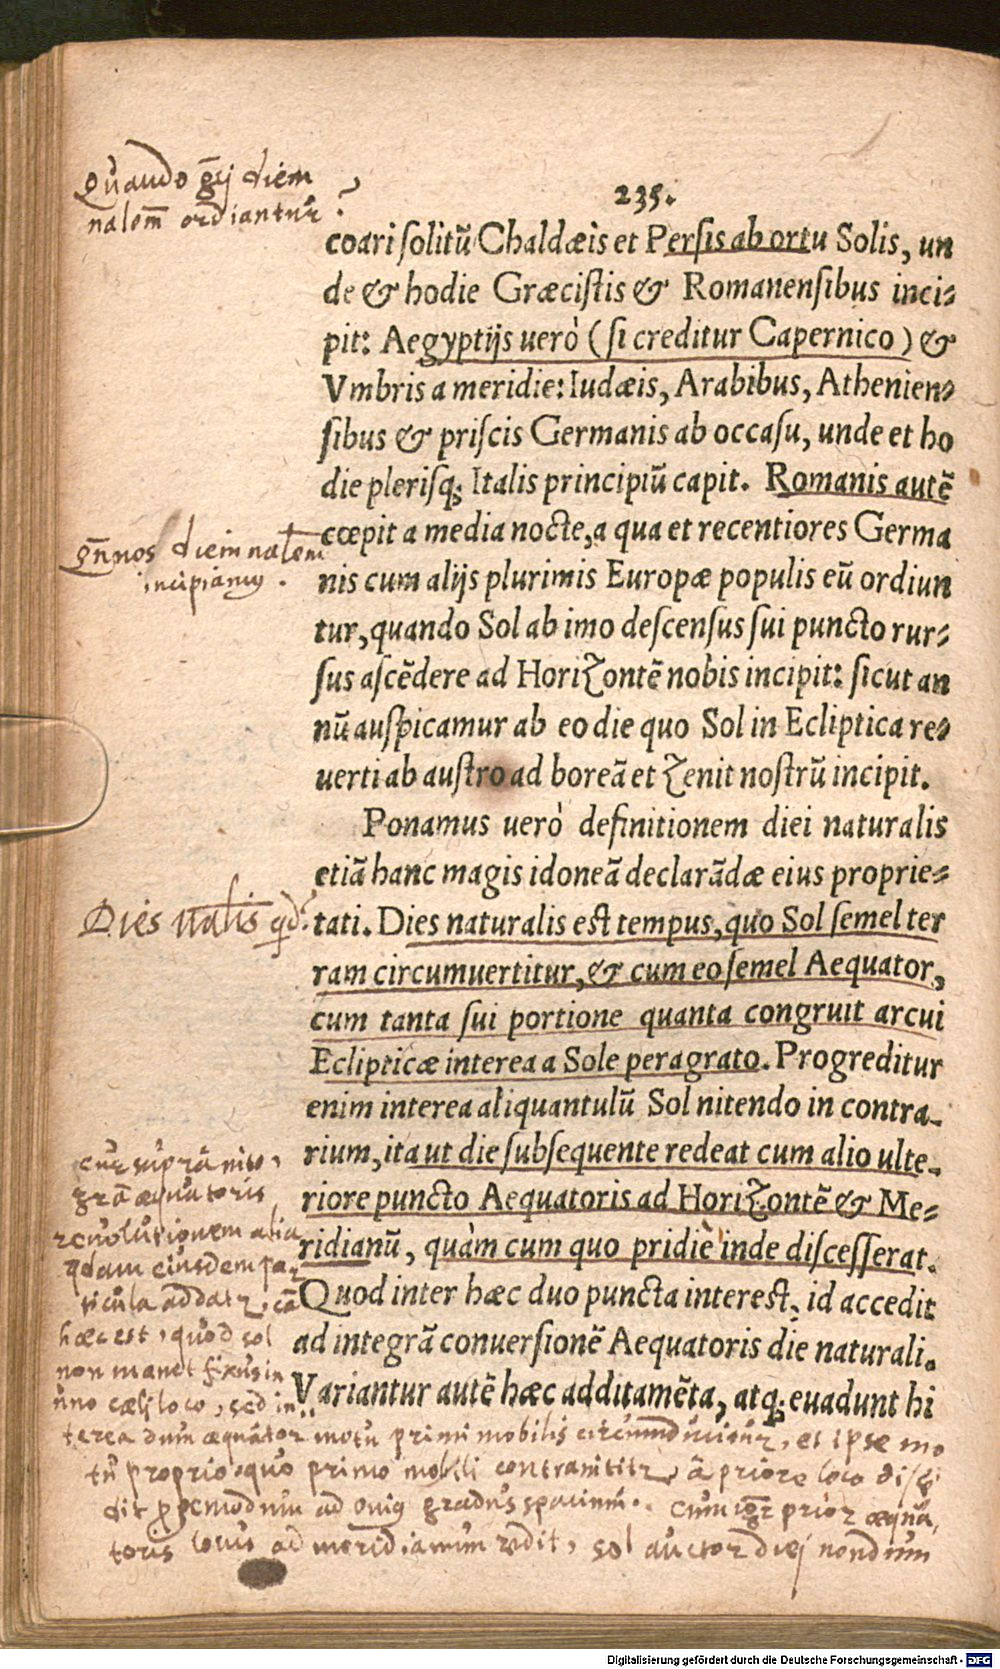 235.
Quando diem
nalem ordiantur?
coari solitũ Chaldæis et Persis ab ortu Solis, un
de & hodie Græcistis & Romanensibus inci-
pit: Aegyptijs uerò (si creditur Capernico) &
Vmbris a meridie: Iudæis, Arabibus, Athenien-
sibus & priscis Germanis ab occasu, unde et ho
die plerisq; Italis principiũ capit. Romanis autẽ
cœpit a media nocte, a qua et recentiores Germa
nis cum alijs plurimis Europæ populis eũ ordiun
tur, quando Sol ab imo descensus sui puncto rur-
sus ascẽdere ad Horizontẽ nobis incipit: sicut an
nũ auspicamur ab eo die quo Sol in Ecliptica re-
uerti ab austro ad boreã et Zenit nostrũ incipit.
nos diem nalem
incipiamus.
Ponamus uerò definitionem diei naturalis
etiã hanc magis idoneã declarãdæ eius proprie-
tati. Dies naturalis est tempus, quo Sol semel ter
ram circumuertitur, & cum eo semel Aequator,
cum tanta sui portione quanta congruit arcui
Eclipticæ interea a Sole peragrato. Progreditur
enim interea aliquantulũ Sol nitendo in contra-
rium, ita ut die subsequente redeat cum alio ulte-
riore puncto Aequatoris ad Horizontẽ & Me-
ridianũ, quàm cum quo pridiè inde discesserat.
Quod inter hæc duo puncta interest, id accedit
ad integrã conuersionẽ Aequatoris die naturali.
Variantur autẽ hæc additamẽta, atq; euadunt hi
Dies nalis
cur supra
æquatoris
reuolutionem aliq
qdam eiusdem par
ticula addatr, cã
hæc est, quod sol
non manet fixus in
uno cæli loco, sed in
terea dum æquator motu primi mobilis circumducitur, et ipse mo
tu proprio quo primo mobili contranititr ã priore loco
dit ad graduus spacium. Cum prior æqua
toris locus ad meridianum redit, sol auctor diei nondum
Digitalisierung gefördert durch die Deutsche Forschungsgemeinschaft - DFG